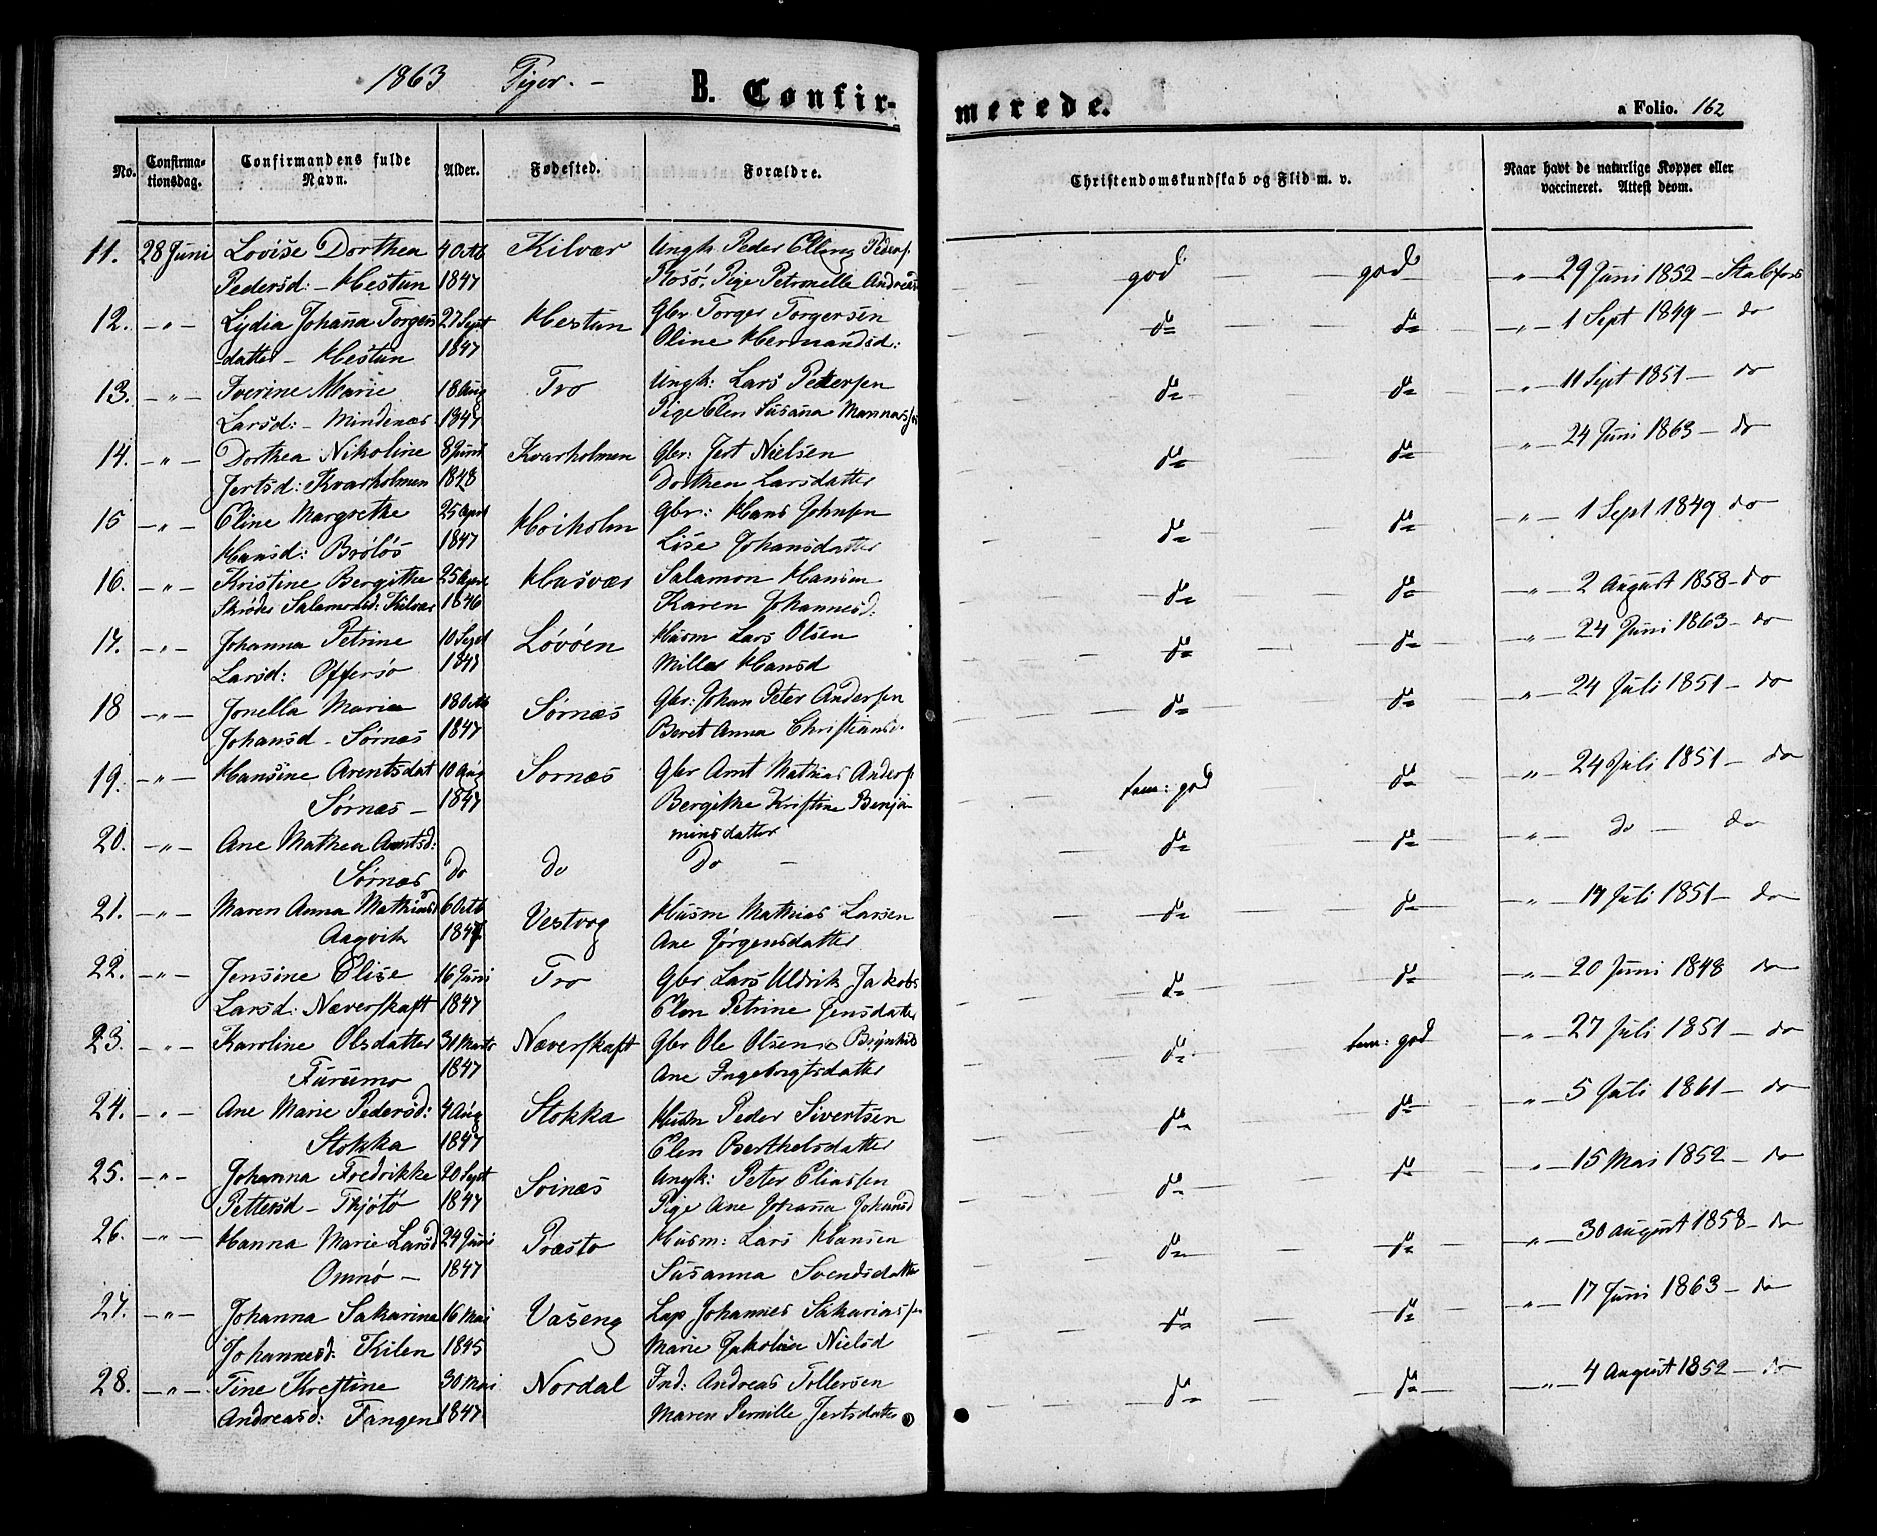 1863 Piger. -
B. Confirmerede.
a Folio. 162
No. Confirmationsdag. Confirmandens fulde Navn. Alder. Fødested. Forældre. Christendomskundskab og Flid m. v. Naar havt de naturlige Kopper eller vaccineret. Attest deom.
11. 28 Juni Lovise Dorthea 4 Octb Kilvær Ungk. Peder Elling Peders. god god " 29 Juni 1852 - Stabfors
Pedersd: - Hestun 1847 Rosø, Pige Petronelle Andreasd
12. " Lydia Johana Torgers 27 Sept Hestun Gbr Torger Torgersen do do " 1 Sept 1849 - do
datter - Hestun 1847 Oline Hermandsd:
13. " Iverine Marie 18 Aug Tro Ungk: Lars Pedersen do do " 11 Sept 1851 - do
Larsd: - Mindenæs 1847 Pige Elen Susana
14. " Dorthea Nikoline 8 Juni Kvarholmen Gbr: Jert Nielsen do do " 24 Juni 1863 - do
Jertsd: Kvarholmen 1848 Dorthea Larsdatter
15 " Eline Margrethe 25 April Høiholm Gbr: Hans Johnsen do do " 1 Sept 1849 do
Hansd: Brøløs 1847 Lise Johansdatter
16. " Kristine Bergitha 25 April Husvær Salamon Hansen do do " 2 August 1858 - do
Salamonsd: Kilvær 1846 Karen Johannesd:
17. " Johanna Petrine 10 Sept Løvøen Husm Lars Olsen do do " 24 Juni 1863 - do
Larsd: Offersø Hansd
18 " Jonella Maria 18 Octb Sørnæs Gbr: Johan Peter Andersen do do " 24 Juli 1851 - do
Johansd - Sørnæs 1847 Beret Anna Christiansd.
19. " Hansine Arentsdat 10 Aug Sornæs Gbr Arnt Mathias Anders. tem: god do " 24 Juli 1851 - do
Sørnæs - 1847 Bergitte Kristine Benja-
minsdatter
20. " Ane Mathea Arntsd: do do " do - do
Sørnæs do do Do -
21. " Maren Anna Mathiasd 6 Octb Vestvog Husm Mathias Larsen do do " 17 Juli 1851 - do
Aagvik 1847 Ane Jørgensdatter
22. " Jensine Elise 16 Juni Tro Gbr Lars Uldrik Jakobs do do " 20 Juni 1848 do
Larsd: Næverskaft 1847 Elen Petrine Jensdatter
23. " Karoline Olsdatter 31 Marts Næverskaft Gbr Ole Olsen do tem: god " 27 Juli 1851 - do
Furumo 1847 Ane Ingeborgtsdatter
24. " Ane Marie Pedersd: 4 Aug Stokka Husm Peder Sivertsen do do " 5 Juli 1861 - do
Stokka 1847 Elen Berthelsdatter
25. " Johanna Fredrikke 20 Sept Svinæs Ungk: Peter Eliassen do do " 15 Mai 1852 - do
Pettersd - Tkjøtø 1847 Pige Ane Johana Johansd
26. " Hanna Marie Larsd 24 Juni Præsto Husm: Lars Hansen do do " 30 August 1858 - do
Omnø - 1847 Susanna Svendsdatter
27. " Johanna Sakarina 16 Mai Vaseng Lap Johannes Sakariassen do do " 17 Juni 1863 - do
Johannesd: Kilen 1845 Marie Jakobine Nielsd
28. " Tine Krestine 30 Mai Nordal Ind: Andreas Tollersen do do " 4 August 1852 - do
Andreasd: Tangen 1847 Maren Pernille Jertsdatter